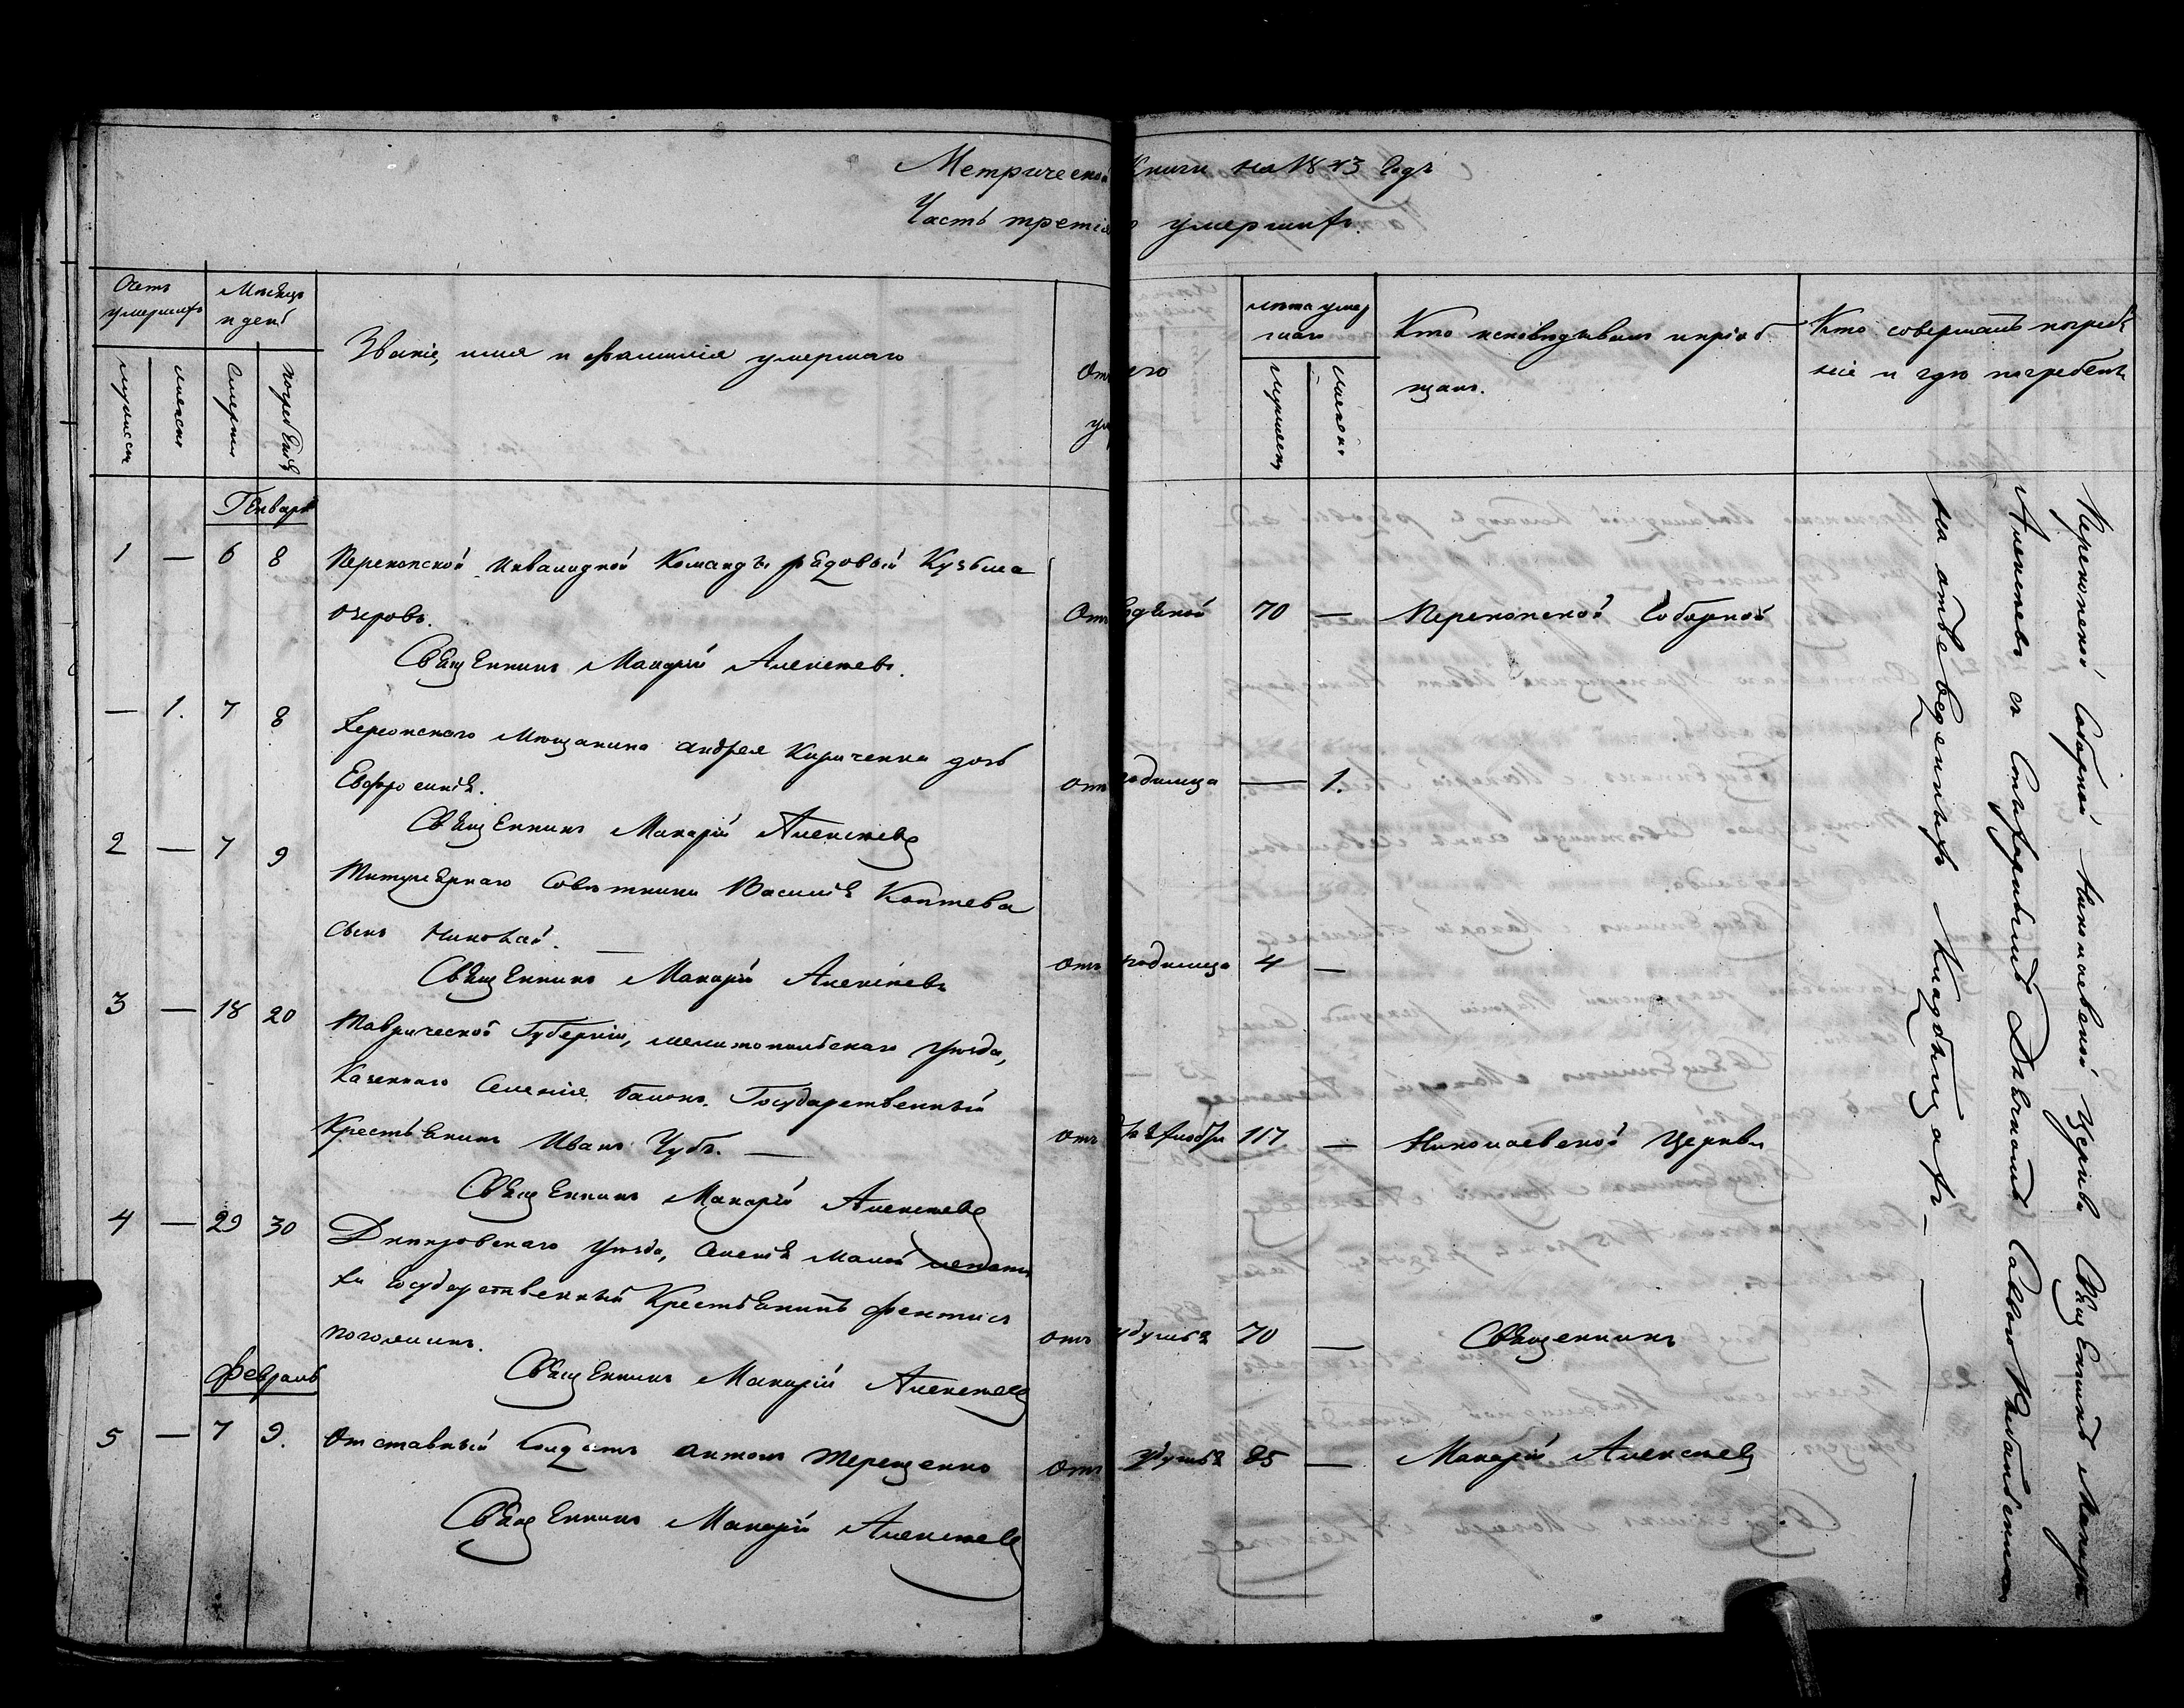 Метрической Книги на 1843 Годъ
Часть третія умершихъ.
Счетъ умершихъ
Мѣсяцъ и день
Званіе, имя и фамилія умершаго
лѣта умершаго
Кто исповѣдывалъ и пріобщалъ.
Кто совершалъ погребеніе и гдѣ погребенъ
мужеска
женска
Смерти
погребенія
мужеска
женска
Генварь
1 — 6 8 Перекопской Инвалидной Команды рядовый Кузьма
Отъ водяной 70 — Перекопской Соборной
Священникъ Макарій Алексѣевъ.
— 1. 7 8 Херсонскаго Мѣщанина Андрея Кириченка дочь
Евфросинія. Отъ родимца — 1.
Священникъ Макарій Алексѣевъ
2 — 7 9 Титулярнаго Совѣтника Василія Коптева
сынъ Николай. — Отъ родимца 4 —
Священникъ Макарій Алексѣевъ
3 — 18 20 Таврической Губерніи, мелитопольскаго уѣзда,
Казеннаго Селенія Балокъ. Государственный
Крестьянинъ Иванъ Чубъ. — Отъ 117 — Николаевской Церкви
Священникъ Макарій Алексѣевъ
4 — 29 30 Днипровскаго уѣзда, Селенія Малой
Государственный Крестьянинъ
Отъ удушья 70 — Священникъ
Священникъ Макарій Алексѣевъ
Февраль
5 — 7 9. Отставный Солдатъ Антонъ Терещенко Отъ удушья 85 — Макарій Алексѣевъ
Священникъ Макарій Алексѣевъ
Перекопской Соборной Николаевской Церкви Священникъ Макарій
Алексѣевъ съ Дьячкомъ Саввою
на отведенныхъ Кладбищахъ —